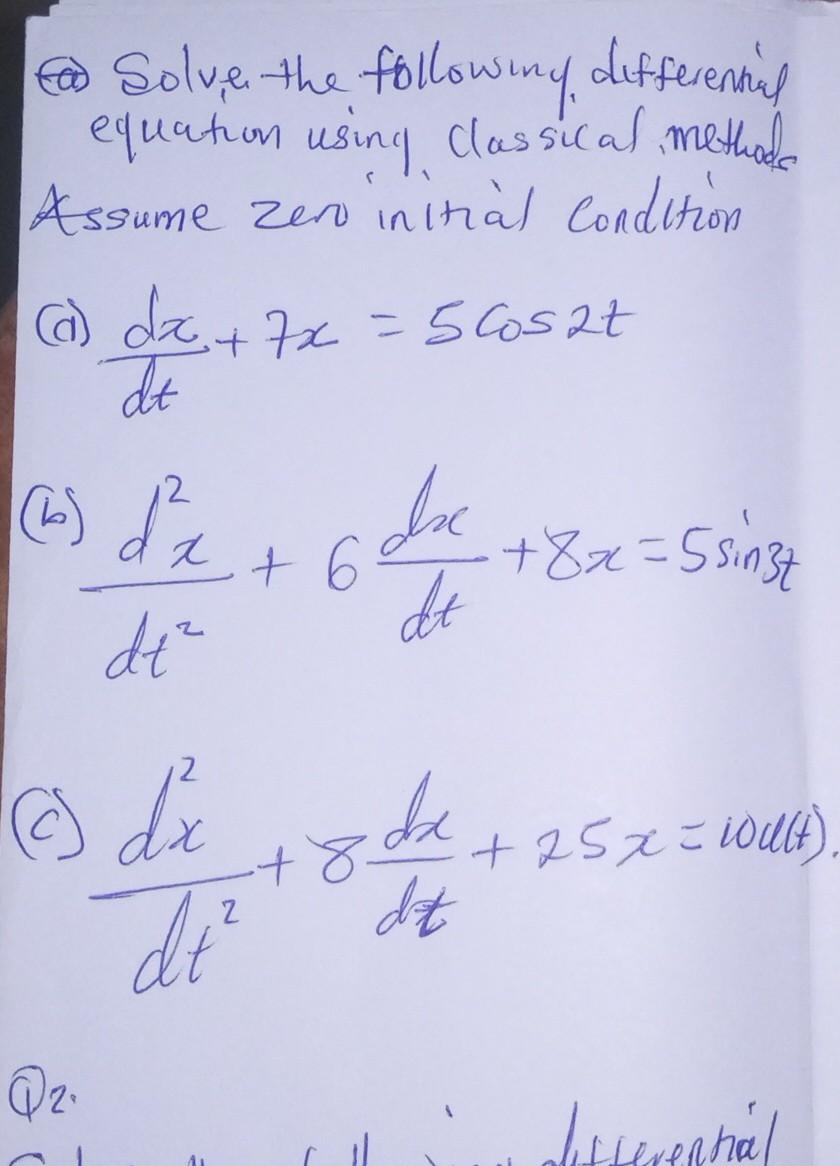 (a) Solve the following differential
equation using classical methods
Assume zero initial condition
(a) dx/dt + 7x = 5 Cos 2t
(b) d²x/dt² + 6 dx/dt + 8x = 5 sin 3t
(c) d²x/dt² + 8 dx/dt + 25x = 10u(t).
Q2.
differential